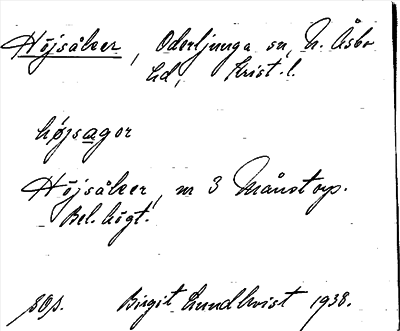 Höjsåker, Oderljunga sn, N. Åsbo
hd, Krist. l.
höjsagor
Höjsåker, nr 3 Månstorp.
Bel. högt.
sÖp. Birgit Lundkvist 1938.